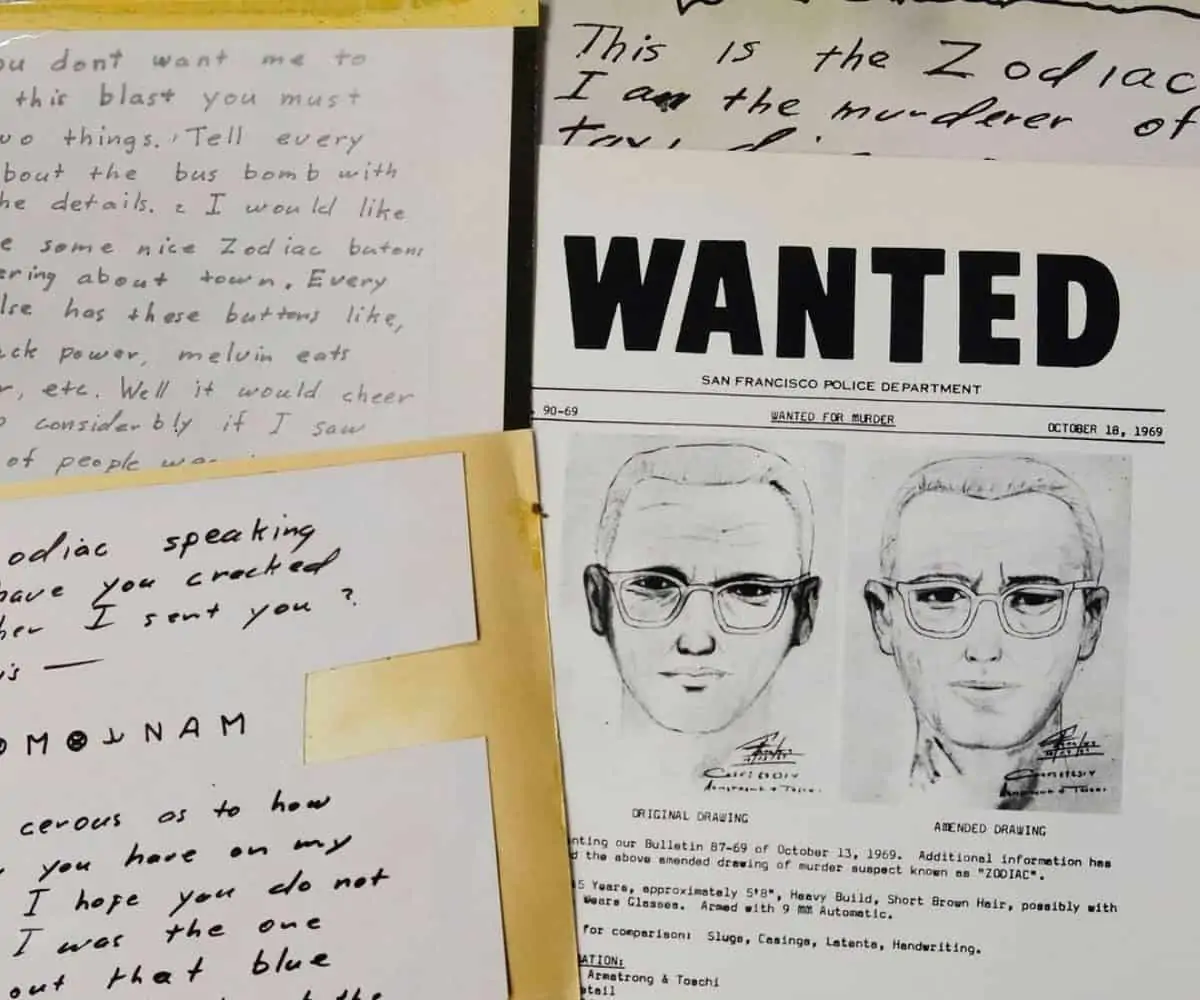 ou dont want me to
this blast you must
wo things. Tell every
bout the bus bomb with
he details. 2 I would like
e some nice Zodiac butons
ering about town. Every
lse has these buttons like,
ck power, melvin eats
r, etc. Well it would cheer
considerbly if I saw
of people
odiac speaking
have you cracked
her I sent you ?
is —
M NAM
cerous as to how
you have on my
I hope you do not
I was the one
out that blue
the
This is the Zodiac
I am the murderer of
WANTED
SAN FRANCISCO POLICE DEPARTMENT
90-69 WANTED FOR MURDER OCTOBER 18, 1969
ORIGINAL DRAWING AMENDED DRAWING
nting our Bulletin 87-69 of October 13, 1969. Additional information has
d the above amended drawing of murder suspect known as "ZODIAC".
5 Years, approximately 5'8", Heavy Build, Short Brown Hair, possibly with
Wears Glasses. Armed with 9 MM Automatic.
for comparison: Slugs, Casings, Latents, Handwriting.
ATION:
Armstrong & Toschi
etail